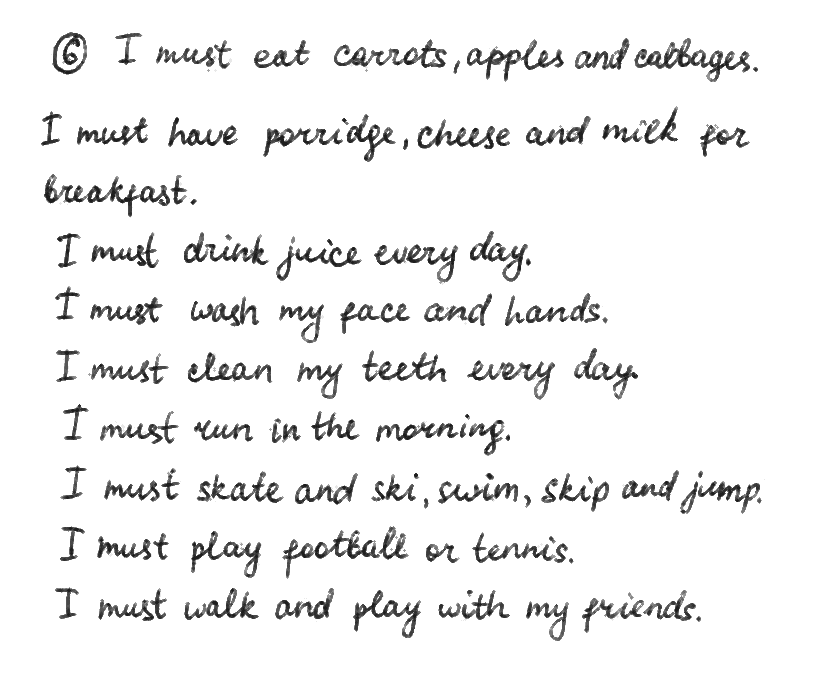 ⑥ I must eat carrots, apples and cabbages.
I must have porridge, cheese and milk for
breakfast.
I must drink juice every day.
I must wash my face and hands.
I must clean my teeth every day.
I must run in the morning.
I must skate and ski, swim, skip and jump.
I must play football or tennis.
I must walk and play with my friends.